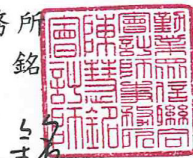 務所
銘
勤業眾信聯合
會計師事務所
陳慧銘
會計師